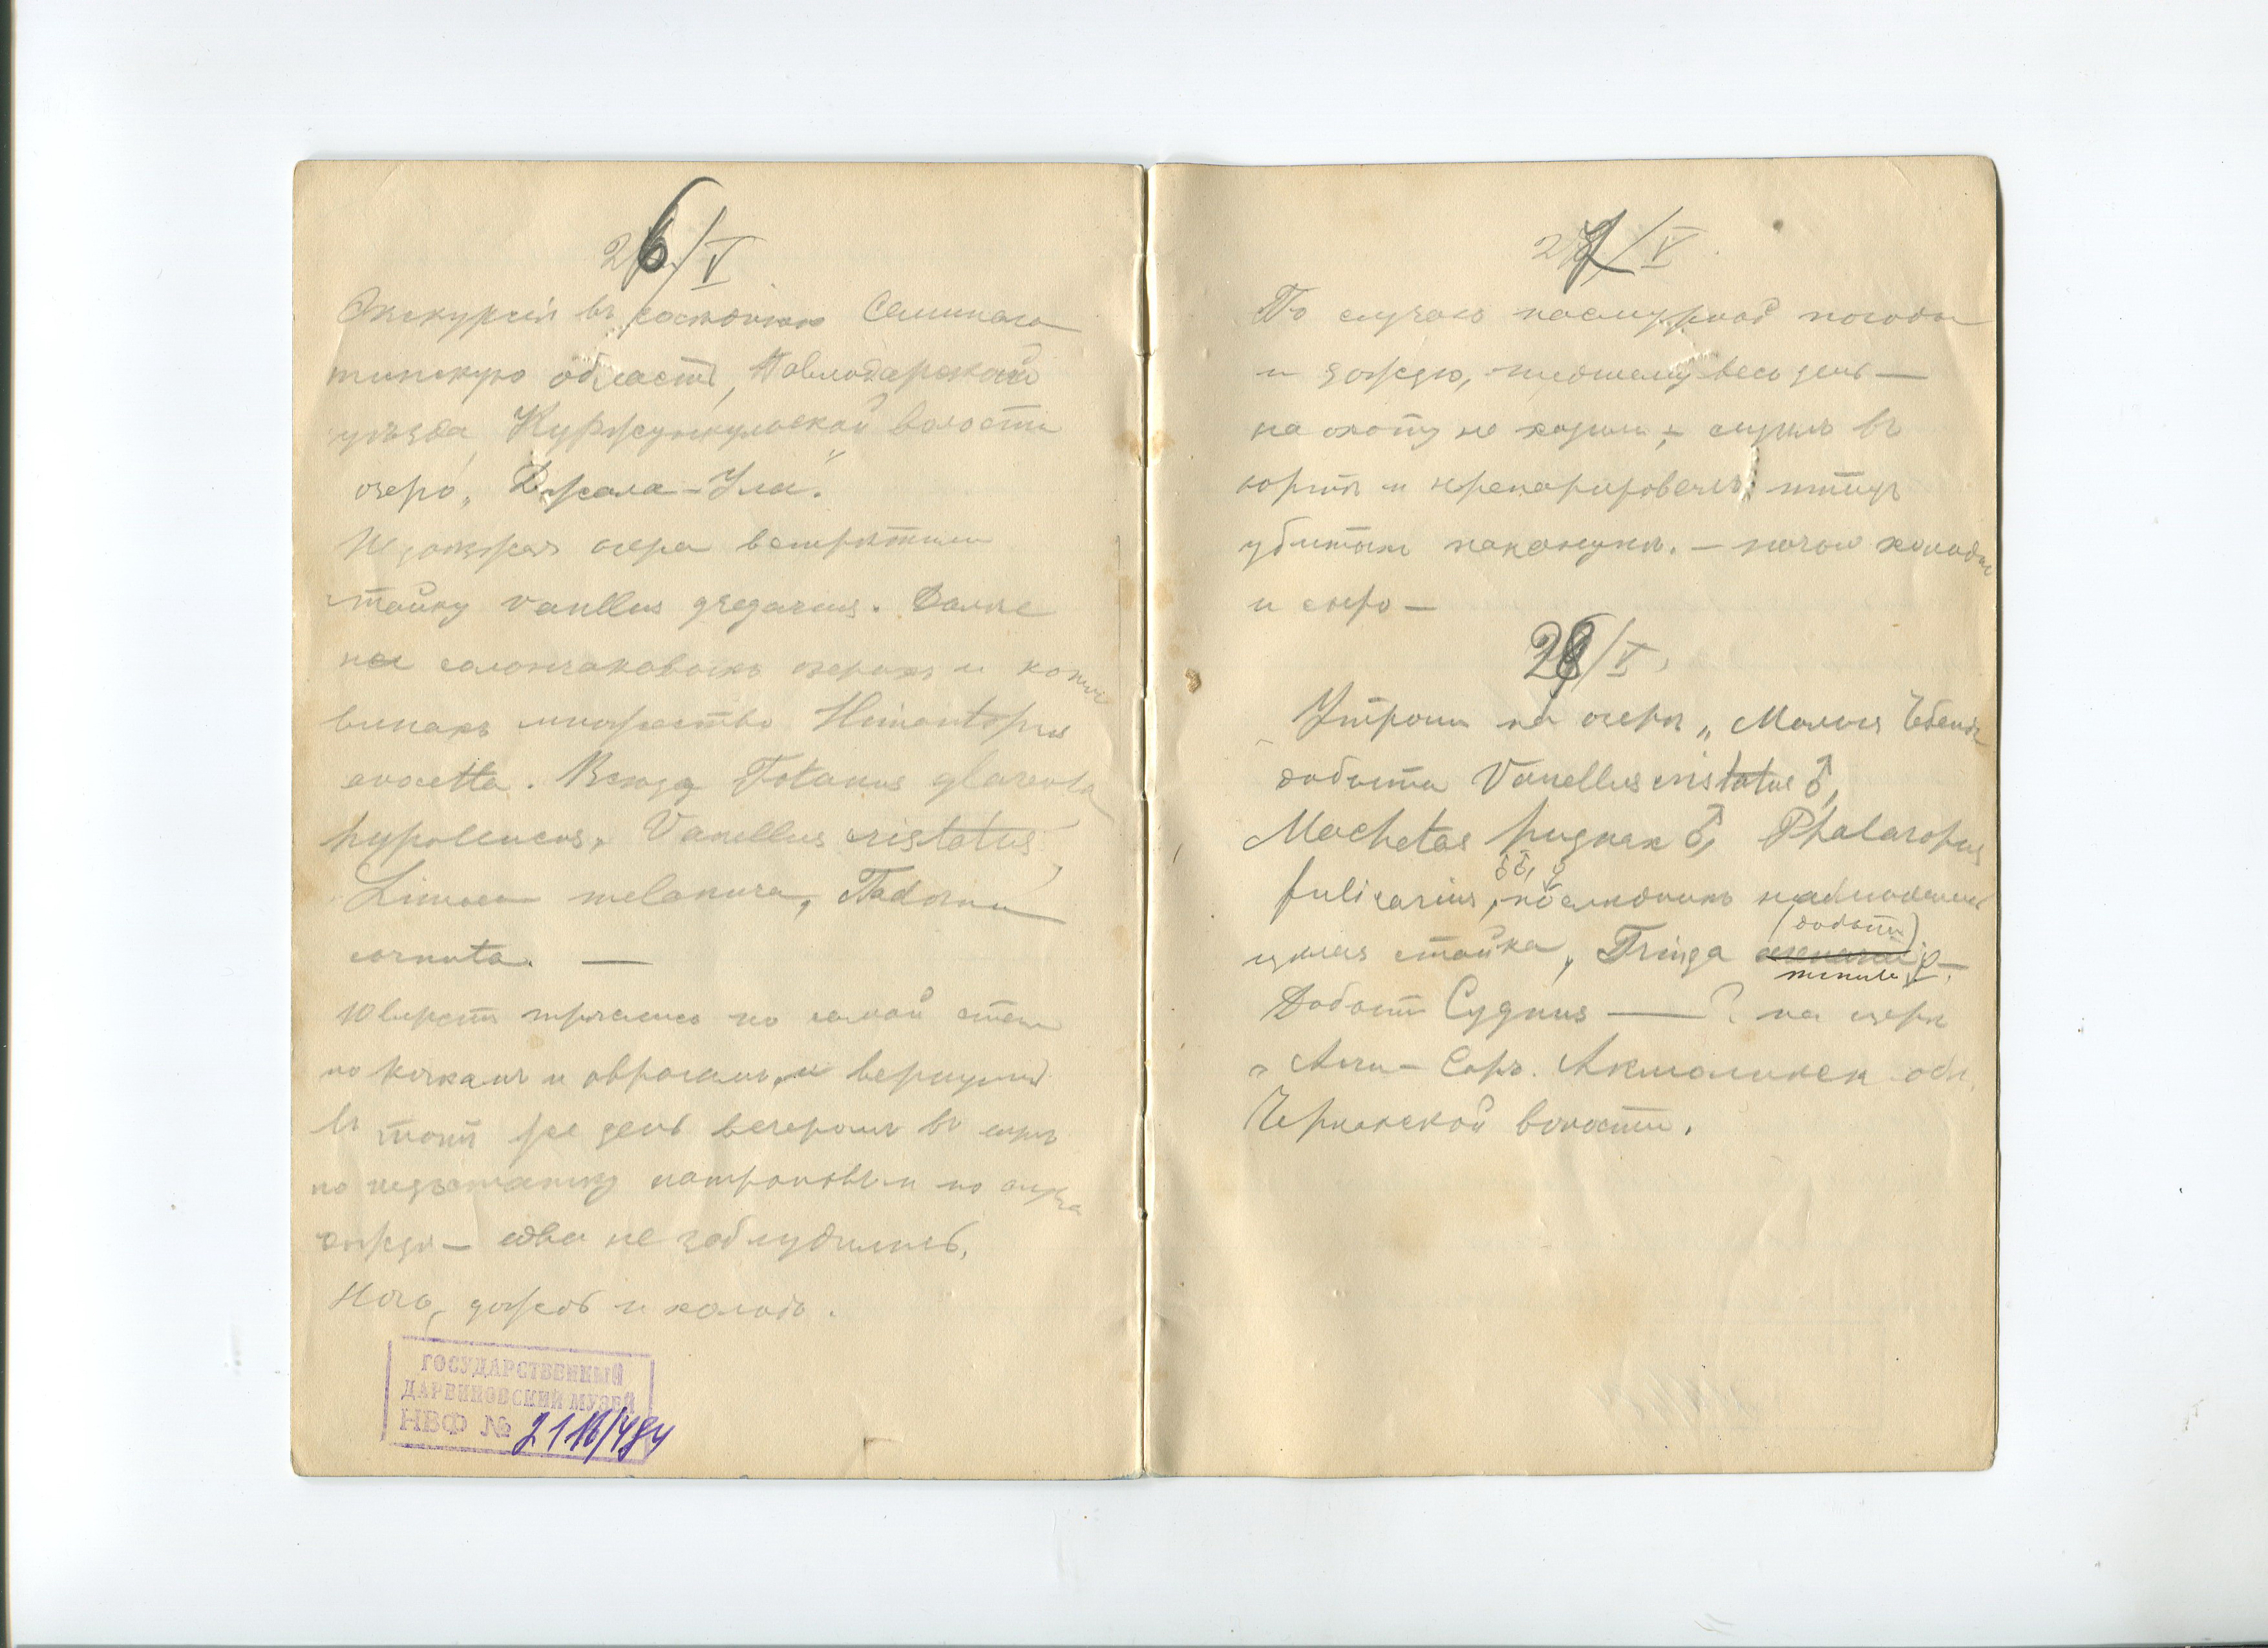 26/V
Экскурсія въ сосѣднюю Семипала
тинскую область, Павлодарской
уѣзда, Куржункульской волости
озеро „Джала-Ула".
Не доѣзжая озера встрѣтили
стайку vanellus gregarius. Далѣе
на солончаковыхъ озерахъ и
множество Himantopus
avocetta. Всюду Totanus glareola
hypoleucus, Vanellus cristatus,
Limosa melanura, Tadorna
cornuta. —
10 верстъ по голой степи
по кочкамъ и оврагамъ, и вернулись
въ тотъ же день вечеромъ въ
по недостатку патроновъ и по случаю
дождя — едва не заблудились.
Ночь, дождь и холодъ.
ГОСУДАРСТВЕННЫЙ
ДАРВИНОВСКИЙ МУЗЕЙ
НВФ № 2116/484
27/V.
По случаю пасмурной погоды
и дождю, шедшему весь день —
на охоту не ходили, сидѣлъ въ
юртѣ и препарировалъ птицъ
убитыхъ наканунѣ. — ночью холодно
и сыро —
28/V.
Утромъ на озерѣ „Малыя
добыты Vanellus cristatus ♂,
Machetes pugnax ♂, Phalaropus
fulicarius, ♂♂, ♀ послѣднихъ наблюдалась
цѣлая стайка, Tringa (добыты)
minuta ♀.
Добыт Cygnus — ? на озерѣ
„ Ачи-Соръ. Акмолинск обл.
волости.